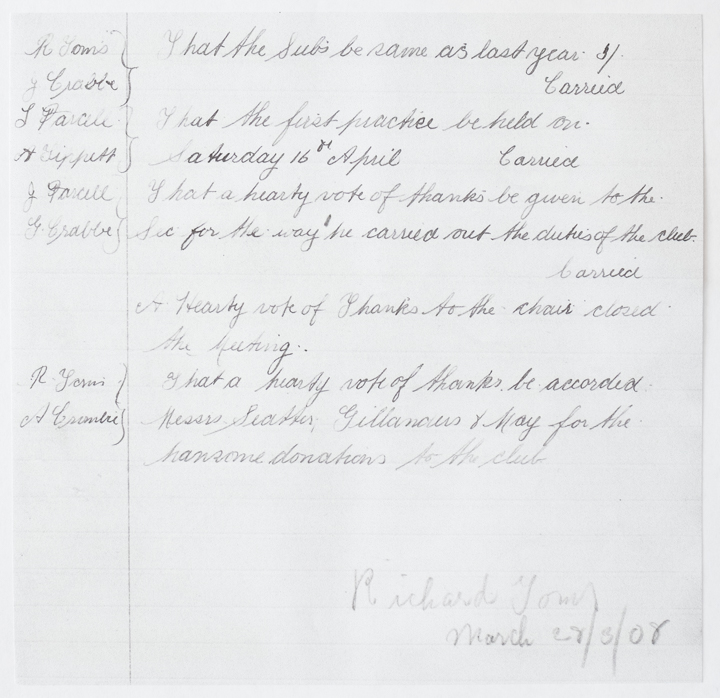 R Toms } That the Subs be same as last year. 5/.
J Crabbe } Carried
S Farcell } That the first practice be held on.
A Tippett } Saturday 16th April Carried
J Farcell } That a hearty vote of thanks be given to the.
G. Crabbe } Sec for the way he carried out the duties of the club.
Carried
A Hearty vote of Thanks to the chair closed.
the Meeting..
R. Toms } That a hearty vote of thanks. be accorded.
A Crombie } Messrs Seatter, Gillanders & May for the.
hansome donations to the club
Richard Toms
March 28/3/08